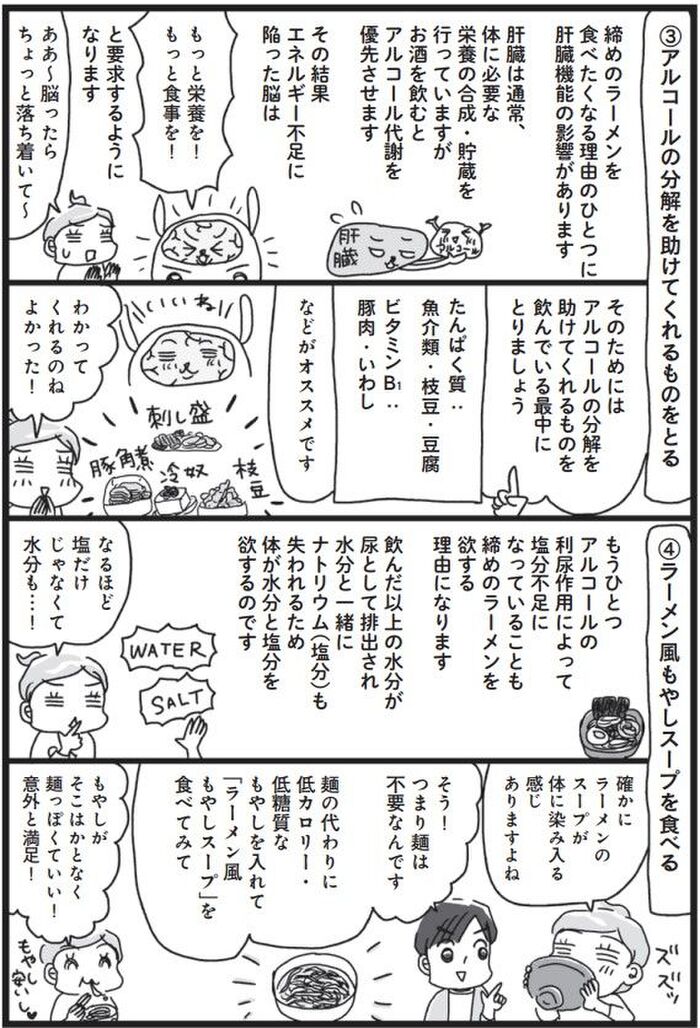 ③アルコールの分解を助けてくれるものをとる
締めのラーメンを
食べたくなる理由のひとつに
肝臓機能の影響があります
肝臓は通常、
体に必要な
栄養の合成・貯蔵を
行っていますが
お酒を飲むと
アルコール代謝を
優先させます
アルコール
肝臓
その結果
エネルギー不足に
陥った脳は
もっと栄養を！
もっと食事を！
と要求するように
なります
ああ〜脳ったら
ちょっと落ち着いて〜
そのためには
アルコールの分解を
助けてくれるものを
飲んでいる最中に
とりましょう
たんぱく質：
魚介類・枝豆・豆腐
ビタミンB₁：
豚肉・いわし
などがオススメです
いいね
刺し盛
枝豆
冷奴
豚角煮
わかって
くれるのね
よかった！
④ラーメン風もやしスープを食べる
もうひとつ
アルコールの
利尿作用によって
塩分不足に
なっていることも
締めのラーメンを
欲する
理由になります
飲んだ以上の水分が
尿として排出され
水分と一緒に
ナトリウム（塩分）も
失われるため
体が水分と塩分を
欲するのです
WATER
SALT
なるほど
塩だけ
じゃなくて
水分も…！
確かに
ラーメンの
スープが
体に染み入る
感じ
ありますよね
ズズッ
そう！
つまり麺は
不要なんです
麺の代わりに
低カロリー・
低糖質な
もやしを入れて
「ラーメン風
もやしスープ」を
食べてみて
もやしが
そこはかとなく
麺っぽくていい！
意外と満足！
もやし
安いし